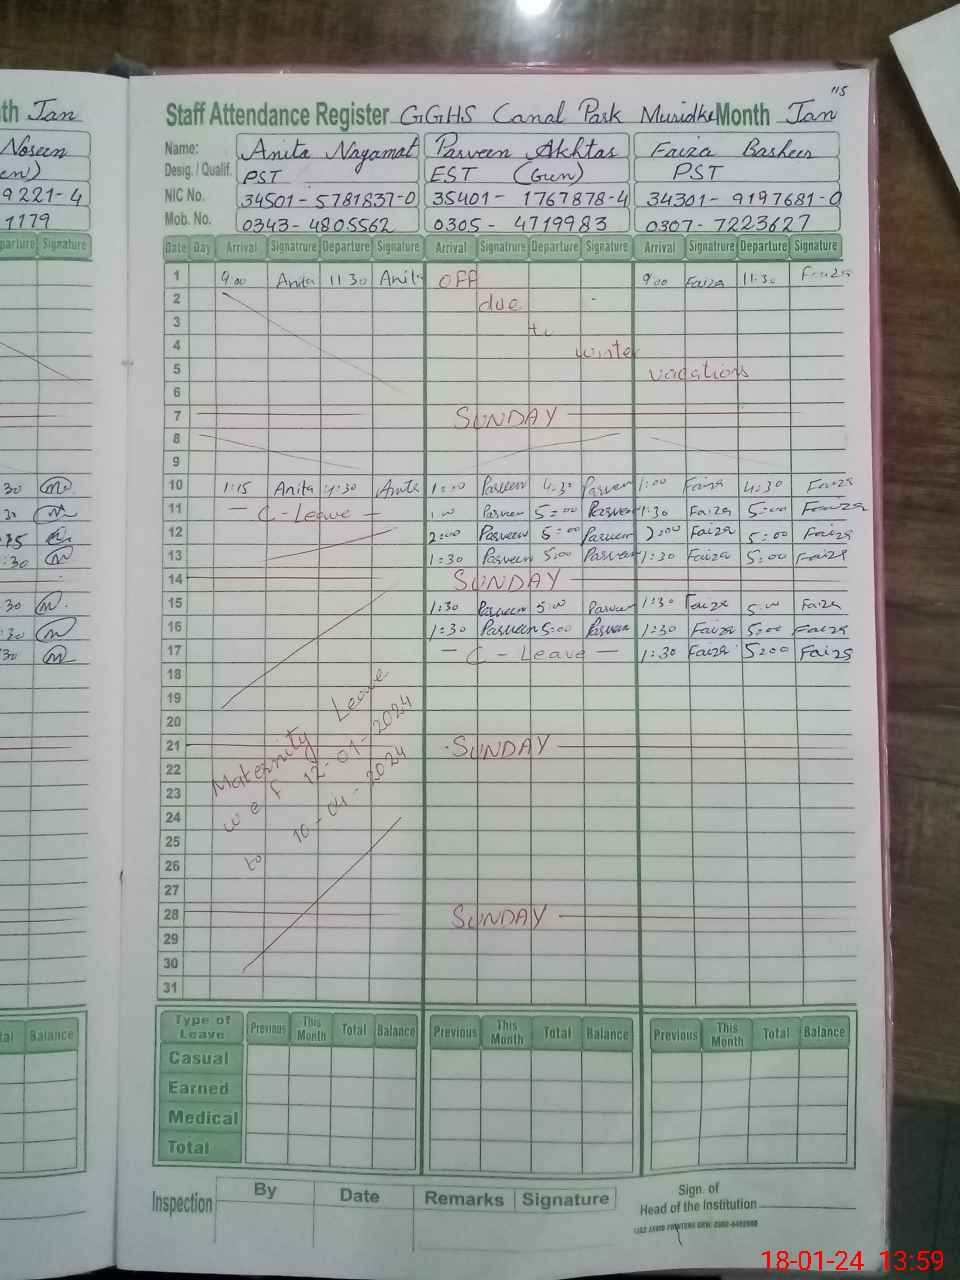 115
th Jan
Staff Attendance Register GGHS Canal Park Muridke Month Jan
Noseen
Name: Anita Nayamat Parveen Akhtar Faiza Basheer
en)
Desig. / Qualif. PST EST (Gen) PST
9221-4
NIC No. 34501-5781837-0 35401-1767878-4 34301-9197681-0
1179
Mob. No. 0343-4805562 0305-4719983 0307-7223627
parture Signature
Date Day Arrival Signatrure Departure Signature Arrival Signatrure Departure Signature Arrival Signatrure Departure Signature
1 9.00 Anita 11 30 Anita OFF 9:00 Faiza 11:30 Faiza
2 due
3 to
4 winter
5 vacations
6
7 SUNDAY
8
9
30
10 1:15 Anita 4:30 Anita Parveen 4:30 Parveen 1:00 Faiza 4:30 Faiza
11 - C-Leave - Parveen 5:00 Parveen 1:30 Faiza 5:00 Faiza
12 2:00 Parveen 5:00 Parveen 2:00 Faiza 5:00 Faiza
:30
13 1:30 Parveen 5:00 Parveen 1:30 Faiza 5:00 Faiza
14 SUNDAY
30
15 1:30 Parveen 5:00 Parveen 1:30 Faiza 5:00 Faiza
:30
16 1:30 Parveen 5:00 Parveen 1:30 Faiza 5:00 Faiza
30
17 - C - Leave - 1:30 Faiza 5:00 Faiza
18
19
20
21 SUNDAY
22
23
24
25
26
27
28 SUNDAY
29
30
31
Maternity Leave
w e f 12-01-2024
to 10-04-2024
tal Balance
Type of Leave Previous This Month Total Balance Previous This Month Total Balance Previous This Month Total Balance
Casual
Earned
Medical
Total
Inspection By Date Remarks Signature
Sign. of
Head of the Institution
18-01-24 13:59